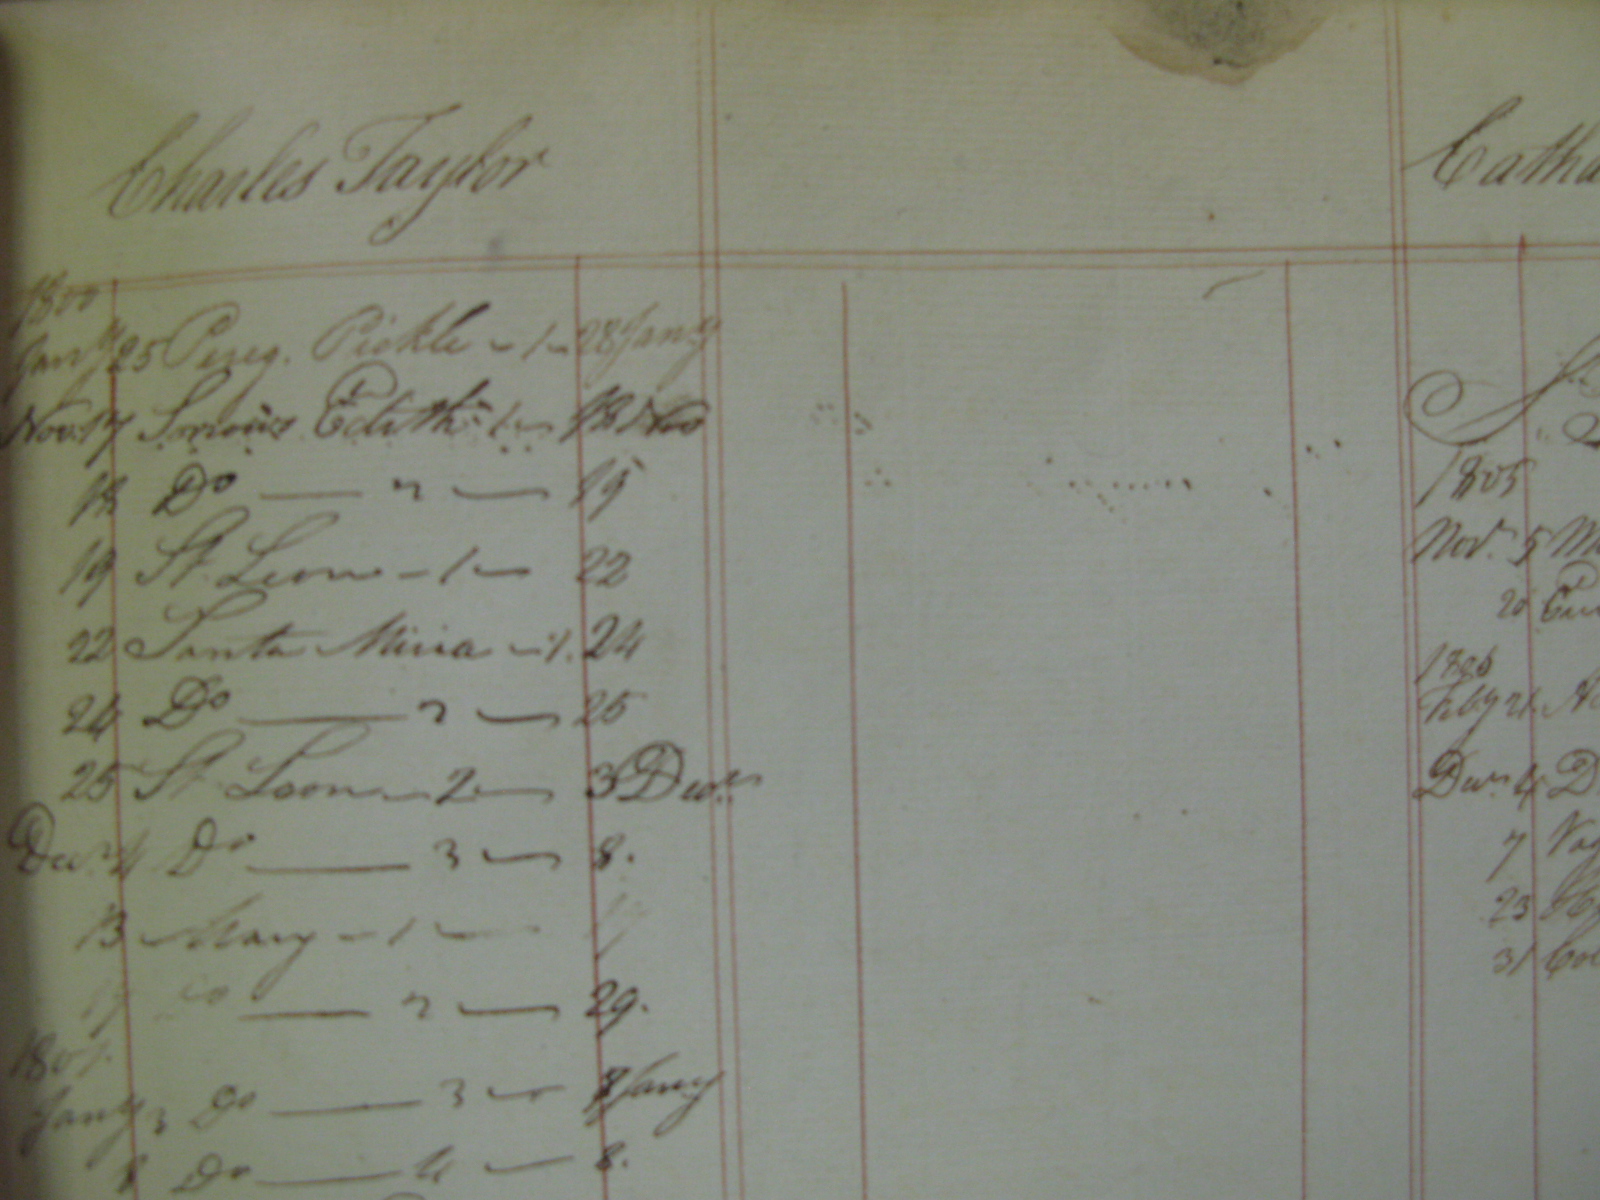 Charles Taylor
1800
Jany 25 Pereg. Pickle - 1 - 28 Jany
Nov. 17 Sorrows Edith - 1 - 18 Do
18 Do — 2 — 19
19 St. Leon - 1 - 22
22 Santa Maria - 1. 24
24 Do — 2 — 25
25 St Leon - 2 - 3 Decr.
Decr. 4 Do — 3 — 8.
13 Mary - 1 - 17
17 Do — 2 — 29.
1801.
Jany 3 Do — 3 — 8 Jany
8 Do — 4 — 8.
Catha
1805
Novr. 5
20
1806
Feby 21
Decr. 4 D
7
23
31